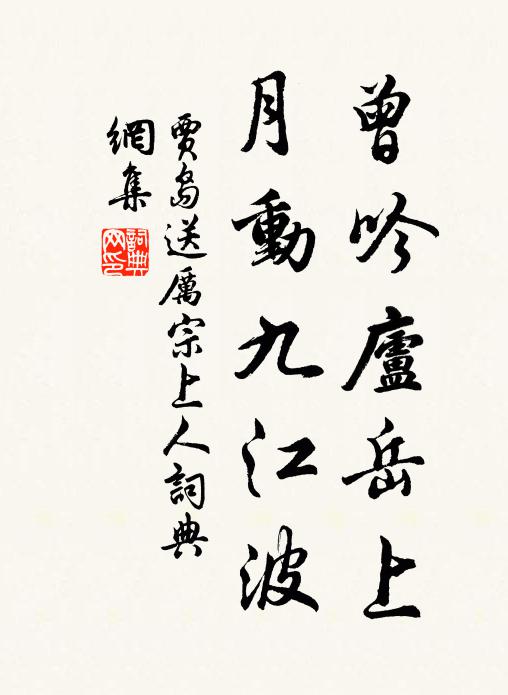 曾吟廬岳上
月動九江波
賈島送厲宗上人詞典
網集
詞典
网印